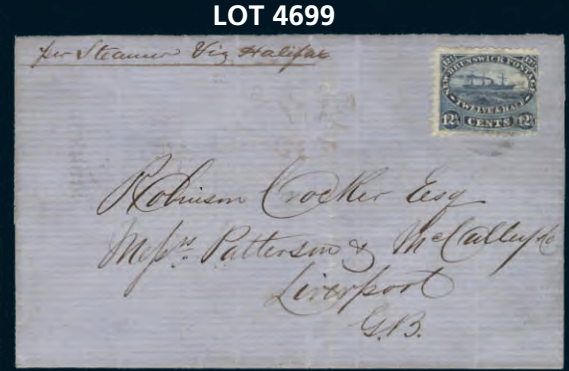 LOT 4699
per Steamer Via Halifax
NEW BRUNSWICK POSTAGE
TWELVE & HALF
12½ CENTS 12½
Robinson Crocker Esq
Messrs. Patterson &
Liverpool
G.B.